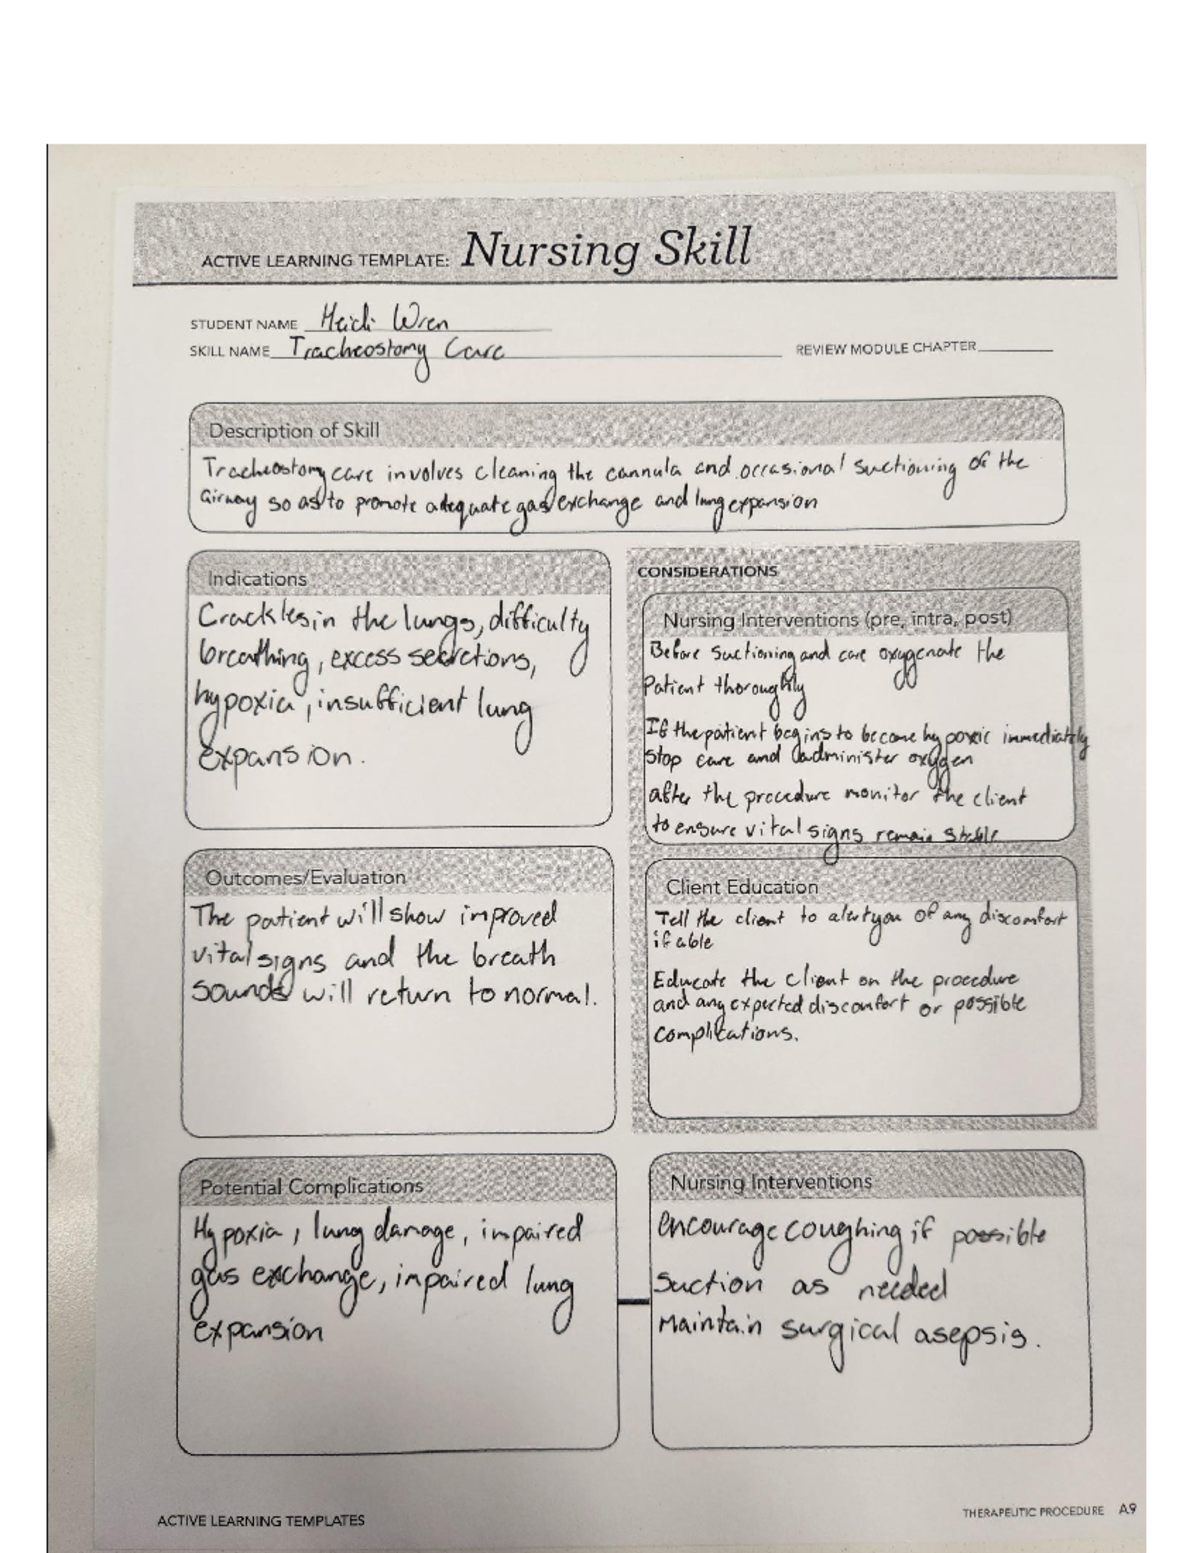 ACTIVE LEARNING TEMPLATE: Nursing Skill
STUDENT NAME Heidi Wren
SKILL NAME Tracheostomy Care
REVIEW MODULE CHAPTER
Description of Skill
Tracheostomy care involves cleaning the cannula and occasional suctioning of the
airway so as to promote adequate gas exchange and lung expansion
Indications
Crackles in the lungs, difficulty
breathing, excess secretions,
hypoxia, insufficient lung
expansion.
CONSIDERATIONS
Nursing Interventions (pre, intra, post)
Before suctioning and care oxygenate the
Patient thoroughly
If the patient begins to become hypoxic immediately
stop care and administer oxygen
after the procedure monitor the client
to ensure vital signs remain stable
Outcomes/Evaluation
The patient will show improved
vital signs and the breath
sounds will return to normal.
Client Education
Tell the client to alert you of any discomfort
if able
Educate the client on the procedure
and any expected discomfort or possible
complications.
Potential Complications
Hypoxia, lung damage, impaired
gas exchange, impaired lung
expansion
Nursing Interventions
encourage coughing if possible
Suction as needed
Maintain surgical asepsis.
ACTIVE LEARNING TEMPLATES
THERAPEUTIC PROCEDURE A9